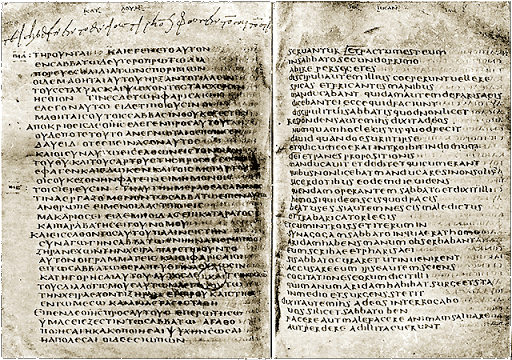 ΚΑΤ ΛΟΥΚ
ΤΗΡΟΥΝΤΑΙ ΚΑΙ ΕΓΕΝΕΤΟ ΑΥΤΟΝ
ΕΝ ΣΑΒΒΑΤΩ ΔΕΥΤΕΡΟΠΡΩΤΩ ΔΙΑ
ΠΟΡΕΥΕΣΘΑΙ ΔΙΑ ΤΩΝ ΣΠΟΡΙΜΩΝ
ΟΙ ΔΕ ΜΑΘΗΤΑΙ ΑΥΤΟΥ ΗΡΞΑΝΤΟ ΤΙΛΛΕΙΝ
ΤΟΥΣ ΣΤΑΧΥΑΣ ΚΑΙ ΨΩΧΟΝΤΕΣ ΤΑΙΣ ΧΕΡΣΙΝ
ΗΣΘΙΟΝ ΤΙΝΕΣ ΔΕ ΤΩΝ ΦΑΡΙΣΑΙΩΝ
ΕΛΕΓΟΝ ΑΥΤΩ ΕΙΔΕ ΤΙ ΠΟΙΟΥΣΙΝ ΟΙ
ΜΑΘΗΤΑΙ ΣΟΥ ΤΟΙΣ ΣΑΒΒΑΣΙΝ Ο ΟΥΚ ΕΞΕΣΤΙΝ
ΑΠΟΚΡΙΘΕΙΣ ΔΕ Ο ΙΗΣ ΕΛΕΓΕΝ ΠΡΟΣ ΑΥΤΟΥΣ
ΟΥΔΕΠΟΤΕ ΤΟΥΤΟ ΑΝΕΓΝΩΤΑΙ Ο ΕΠΟΙΗΣΕΝ
ΔΑΥΕΙΔ ΟΤΕ ΕΠΕΙΝΑΣΕΝ ΑΥΤΟΣ
ΚΑΙ ΟΙ ΣΥΝ ΑΥΤΩ ΕΙΣΕΛΘΩΝ ΕΙΣ ΤΟΝ ΟΙΚΟΝ
ΤΟΥ ΘΥ ΚΑΙ ΤΟΥΣ ΑΡΤΟΥΣ ΤΗΣ ΠΡΟΣΘΕΣΕΩΣ
ΕΦΑΓΕΝ ΚΑΙ ΕΔΩΚΕΝ ΚΑΙ ΤΟΙΣ ΜΕΤ ΑΥΤΟΥ
ΟΙΣ ΟΥΚ ΕΞΟΝ ΗΝ ΦΑΓΕΙΝ ΕΙ ΜΗ ΜΟΝΟΙΣ
ΤΟΙΣ ΙΕΡΕΥΣΙΝ ΤΗ ΑΥΤΗ ΗΜΕΡΑ ΘΕΑΣΑΜΕΝΟΣ
ΤΙΝΑ ΕΡΓΑΖΟΜΕΝΟΝ ΤΩ ΣΑΒΒΑΤΩ ΕΙΠΕΝ ΑΥΤΩ
ΑΝΘΡΩΠΕ ΕΙ ΜΕΝ ΟΙΔΑΣ ΤΙ ΠΟΙΕΙΣ
ΜΑΚΑΡΙΟΣ ΕΙ ΕΙ ΔΕ ΜΗ ΟΙΔΑΣ ΕΠΙΚΑΤΑΡΑΤΟΣ
ΚΑΙ ΠΑΡΑΒΑΤΗΣ ΕΙ ΤΟΥ ΝΟΜΟΥ
ΚΑΙ ΕΙΣΕΛΘΟΝΤΟΣ ΑΥΤΟΥ ΠΑΛΙΝ ΕΙΣ ΤΗΝ
ΣΥΝΑΓΩΓΗΝ ΣΑΒΒΑΤΩ ΕΝ Η ΗΝ ΑΝΘΡΩΠΟΣ
ΞΗΡΑΝ ΕΧΩΝ ΤΗΝ ΧΕΙΡΑ ΠΑΡΕΤΗΡΟΥΝΤΟ
ΑΥΤΟΝ ΟΙ ΓΡΑΜΜΑΤΕΙΣ ΚΑΙ ΟΙ ΦΑΡΙΣΑΙΟΙ
ΕΙ ΤΩ ΣΑΒΒΑΤΩ ΘΕΡΑΠΕΥΕΙ ΙΝΑ ΕΥΡΩΣΙΝ
ΚΑΤΗΓΟΡΗΣΑΙ ΑΥΤΟΥ ΑΥΤΟΣ ΔΕ ΓΕΙΝΩΣΚΩΝ
ΤΟΥΣ ΔΙΑΛΟΓΙΣΜΟΥΣ ΑΥΤΩΝ ΛΕΓΕΙ ΤΩ
ΤΗΝ ΧΕΙΡΑ ΕΧΟΝΤΙ ΞΗΡΑΝ ΕΓΕΙΡΟΥ ΚΑΙ ΣΤΗΘΙ
ΕΝ ΤΩ ΜΕΣΩ ΚΑΙ ΑΝΑΣΤΑΣ ΕΣΤΑΘΗ
ΕΙΠΕΝ ΔΕ Ο ΙΗΣ ΠΡΟΣ ΑΥΤΟΥΣ ΕΠΕΡΩΤΗΣΩ
ΥΜΑΣ ΕΙ ΕΞΕΣΤΙΝ ΤΩ ΣΑΒΒΑΤΩ ΑΓΑΘΟ
ΠΟΙΗΣΑΙ Η ΚΑΚΟΠΟΙΗΣΑΙ ΨΥΧΗΝ ΣΩΣΑΙ
Η ΑΠΟΛΕΣΑΙ ΟΙ ΔΕ ΕΣΙΩΠΩΝ
LUCAN
seruantur et factum est eum
in sabbato secundo primo
abire per segetes
discipuli autem illius coeperunt uellere
spicas et fricantes manibus
manducabant quidam autem de farisaeis
dicebant ei ecce quid faciunt
discipuli tui sabbatis quod non licet
respondens autem ihs dixit ad eos
numquam hoc legistis quod fecit
dauid quando esuriit ipse
et qui cum eo erat introibit in domum
dei et panes propositionis
manducauit et dedit et qui cum erant
quibus non licebat manducare si non solis
sacerdotibus eodem die uidens
quendam operantem sabbato et dixit illi
homo si quidem scis quod facis
beatus es si autem nescis maledictus
et trabaricator legis
et cum introisset iterum in
synagogam sabbato in qua erat homo
aridam habens manum obseruabant
eum scribae et pharisaei
si sabbato curaret ut inuenirent
accusare eum ipse autem sciens
cogitationes eorum dicit illi
qui manum aridam habebat surge et sta
in medio et surgens stetit
dixit autem ihs ad eos interrogabo
uos si licet sabbato bene
facere aut male facere animam saluare
aut perdere ad illi tacuerunt